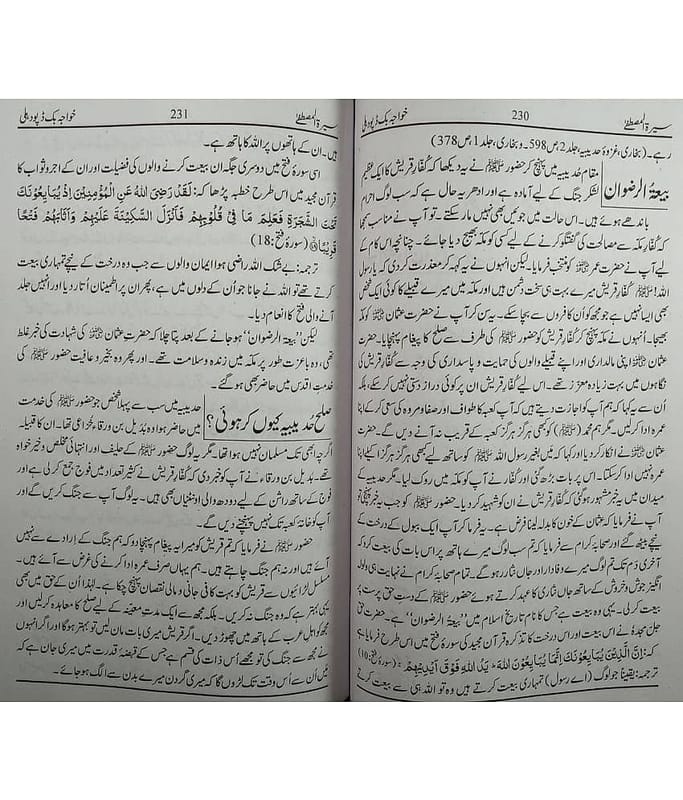 سیرۃ المصطفیٰ 230 خواجہ بک ڈپو دہلی
رہے۔ (بخاری، غزوۂ حدیبیہ، جلد2، ص598۔ و بخاری، جلد1، ص378)
بیعۃ الرضوان
مقام حدیبیہ میں پہنچ کر حضور ﷺ نے یہ دیکھا کہ کفار قریش کا ایک عظیم
لشکر جنگ کے لیے آمادہ ہے اور ادھر یہ حال ہے کہ سب لوگ احرام
باندھے ہوئے ہیں۔ اس حالت میں جوئیں بھی نہیں مار سکتے تو آپ نے مناسب سمجھا
کہ کفار مکہ سے مصالحت کی گفتگو کرنے کے لیے کسی کو مکہ بھیج دیا جائے۔ چنانچہ اس کام کے
لیے آپ نے حضرت عمر کو منتخب فرمایا۔ لیکن انہوں نے یہ کہہ کر معذرت کر دی کہ یا رسول
اللہ! ﷺ کفار قریش میرے بہت ہی سخت دشمن ہیں اور مکہ میں میرے قبیلے کا کوئی ایک شخص
بھی ایسا نہیں ہے جو مجھ کو اُن کافروں سے بچا سکے۔ یہ سن کر آپ نے حضرت عثمان کو مکہ
بھیجا۔ اُنہوں نے مکہ پہنچ کر کفار قریش کو حضور ﷺ کی طرف سے صلح کا پیغام پہنچایا۔ حضرت
عثمان اپنی مالداری اور اپنے قبیلے والوں کی حمایت و پاسداری کی وجہ سے کفار قریش کی
نگاہوں میں بہت زیادہ معزز تھے۔ اس لیے کفار قریش ان پر کوئی دراز دستی نہیں کر سکے۔ بلکہ
اُن سے یہ کہا کہ ہم آپ کو اجازت دیتے ہیں کہ آپ کعبہ کا طواف اور صفا مروہ کی سعی کر کے اپنا
عمرہ ادا کر لیں۔ مگر ہم محمد (ﷺ) کو بھی ہرگز ہرگز کعبہ کے قریب نہ آنے دیں گے۔ حضرت
عثمان نے انکار کر دیا اور کہا کہ میں بغیر رسول اللہ ﷺ کو ساتھ لیے بھی ہرگز ہرگز اکیلے اپنا
عمرہ نہیں ادا کر سکتا۔ اس پر بات بڑھ گئی اور کفار قریش نے آپ کو مکہ میں روک لیا۔ مگر حدیبیہ کے
میدان میں یہ خبر مشہور ہو گئی کہ کفار قریش نے ان کو شہید کر دیا۔ حضور ﷺ کو جب یہ خبر پہنچی تو
آپ نے فرمایا کہ عثمان کے خون کا بدلہ لینا فرض ہے۔ یہ فرما کر آپ ایک ببول کے درخت کے
نیچے بیٹھ گئے اور صحابہ کرام سے فرمایا کہ تم سب لوگ میرے ہاتھ پر اس بات کی بیعت کرو کہ
آخری دم تک تم لوگ میرے وفادار اور جاں نثار رہو گے۔ تمام صحابہ کرام نے نہایت ہی ولولہ
انگیز جوش و خروش کے ساتھ جاں نثاری کا عہد کرتے ہوئے حضور ﷺ کے دست حق پرست پر
بیعت کر لی۔ یہی وہ بیعت ہے جس کا نام تاریخ اسلام میں ”بیعۃ الرضوان“ ہے۔ حضرت حق
جل مجدہٗ نے اس بیعت اور اس درخت کا تذکرہ قرآن مجید کی سورۂ فتح میں اس طرح فرمایا ہے
کہ: اِنَّ الَّذِیْنَ یُبَایِعُوْنَكَ اِنَّمَا یُبَایِعُوْنَ اللهَ ؕ یَدُ اللهِ فَوْقَ اَیْدِیْهِمْ (سورۂ فتح:10)
ترجمہ: یقینا جو لوگ (اے رسول) تمہاری بیعت کرتے ہیں وہ تو اللہ ہی سے بیعت کرتے
سیرۃ المصطفیٰ 231 خواجہ بک ڈپو دہلی
ہیں۔ ان کے ہاتھوں پر اللہ کا ہاتھ ہے۔
اسی سورۂ فتح میں دوسری جگہ ان بیعت کرنے والوں کی فضیلت اور ان کے اجر و ثواب کا
قرآن مجید میں اس طرح خطبہ پڑھا کہ: لَقَدْ رَضِیَ اللهُ عَنِ الْمُؤْمِنِیْنَ اِذْ یُبَایِعُوْنَكَ
تَحْتَ الشَّجَرَةِ فَعَلِمَ مَا فِیْ قُلُوْبِهِمْ فَاَنْزَلَ السَّكِیْنَةَ عَلَیْهِمْ وَاَثَابَهُمْ فَتْحًا
قَرِیْبًا (سورۂ فتح:18)
ترجمہ: بے شک اللہ راضی ہوا ایمان والوں سے جب وہ درخت کے نیچے تمہاری بیعت
کرتے تھے تو اللہ نے جانا جو اُن کے دلوں میں ہے، پھر ان پر اطمینان اُتار دیا اور انہیں جلد
آنے والی فتح کا انعام دیا۔
لیکن ”بیعۃ الرضوان“ ہو جانے کے بعد پتا چلا کہ حضرت عثمان کی شہادت کی خبر غلط
تھی، وہ باعزت طور پر مکہ میں زندہ و سلامت تھے۔ اور پھر وہ بخیر و عافیت حضور ﷺ کی
خدمت اقدس میں حاضر بھی ہو گئے۔
صلح حدیبیہ کیوں کر ہوئی؟
حدیبیہ میں سب سے پہلا شخص جو حضور ﷺ کی خدمت
میں حاضر ہوا وہ بدیل بن ورقاء خزاعی تھا۔ ان کا قبیلہ
اگرچہ ابھی تک مسلمان نہیں ہوا تھا۔ مگر یہ لوگ حضور ﷺ کے حلیف اور انتہائی مخلص و خیر خواہ
تھے۔ بدیل بن ورقاء نے آپ کو خبر دی کہ کفار قریش نے کثیر تعداد میں فوج جمع کر لی ہے اور
فوج کے ساتھ راشن کے لیے دودھ والی اونٹنیاں بھی ہیں۔ یہ لوگ آپ سے جنگ کریں گے اور
آپ کو خانہ کعبہ تک نہیں پہنچنے دیں گے۔
حضور ﷺ نے فرمایا کہ تم قریش کو میرا یہ پیغام پہنچا دو کہ ہم جنگ کے ارادے سے نہیں
آئے ہیں اور نہ ہم جنگ چاہتے ہیں۔ ہم یہاں صرف عمرہ ادا کرنے کی غرض سے آئے ہیں۔
مسلسل لڑائیوں سے قریش کو بہت کافی جانی و مالی نقصان پہنچ چکا ہے۔ لہٰذا اُن کے حق میں بھی
یہی بہتر ہے کہ وہ جنگ نہ کریں۔ بلکہ مجھ سے ایک مدت معینہ کے لیے صلح کا معاہدہ کر لیں اور
مجھ کو اہل عرب کے ہاتھ میں چھوڑ دیں۔ اگر قریش میری بات مان لیں تو بہتر ہوگا اور اگر انہوں
نے مجھ سے جنگ کی تو مجھے اُس ذات کی قسم ہے جس کے قبضۂ قدرت میں میری جان ہے کہ
میں اُن سے اُس وقت تک لڑوں گا کہ میری گردن میرے بدن سے الگ ہو جائے۔